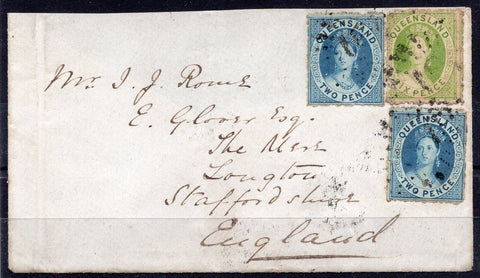 QUEENSLAND
TWO PENCE
QUEENSLAND
SIX PENCE
QUEENSLAND
TWO PENCE
Mr. I. J. Rowe
E. Glover Esq.
The Mere
Longton
Staffordshire
England